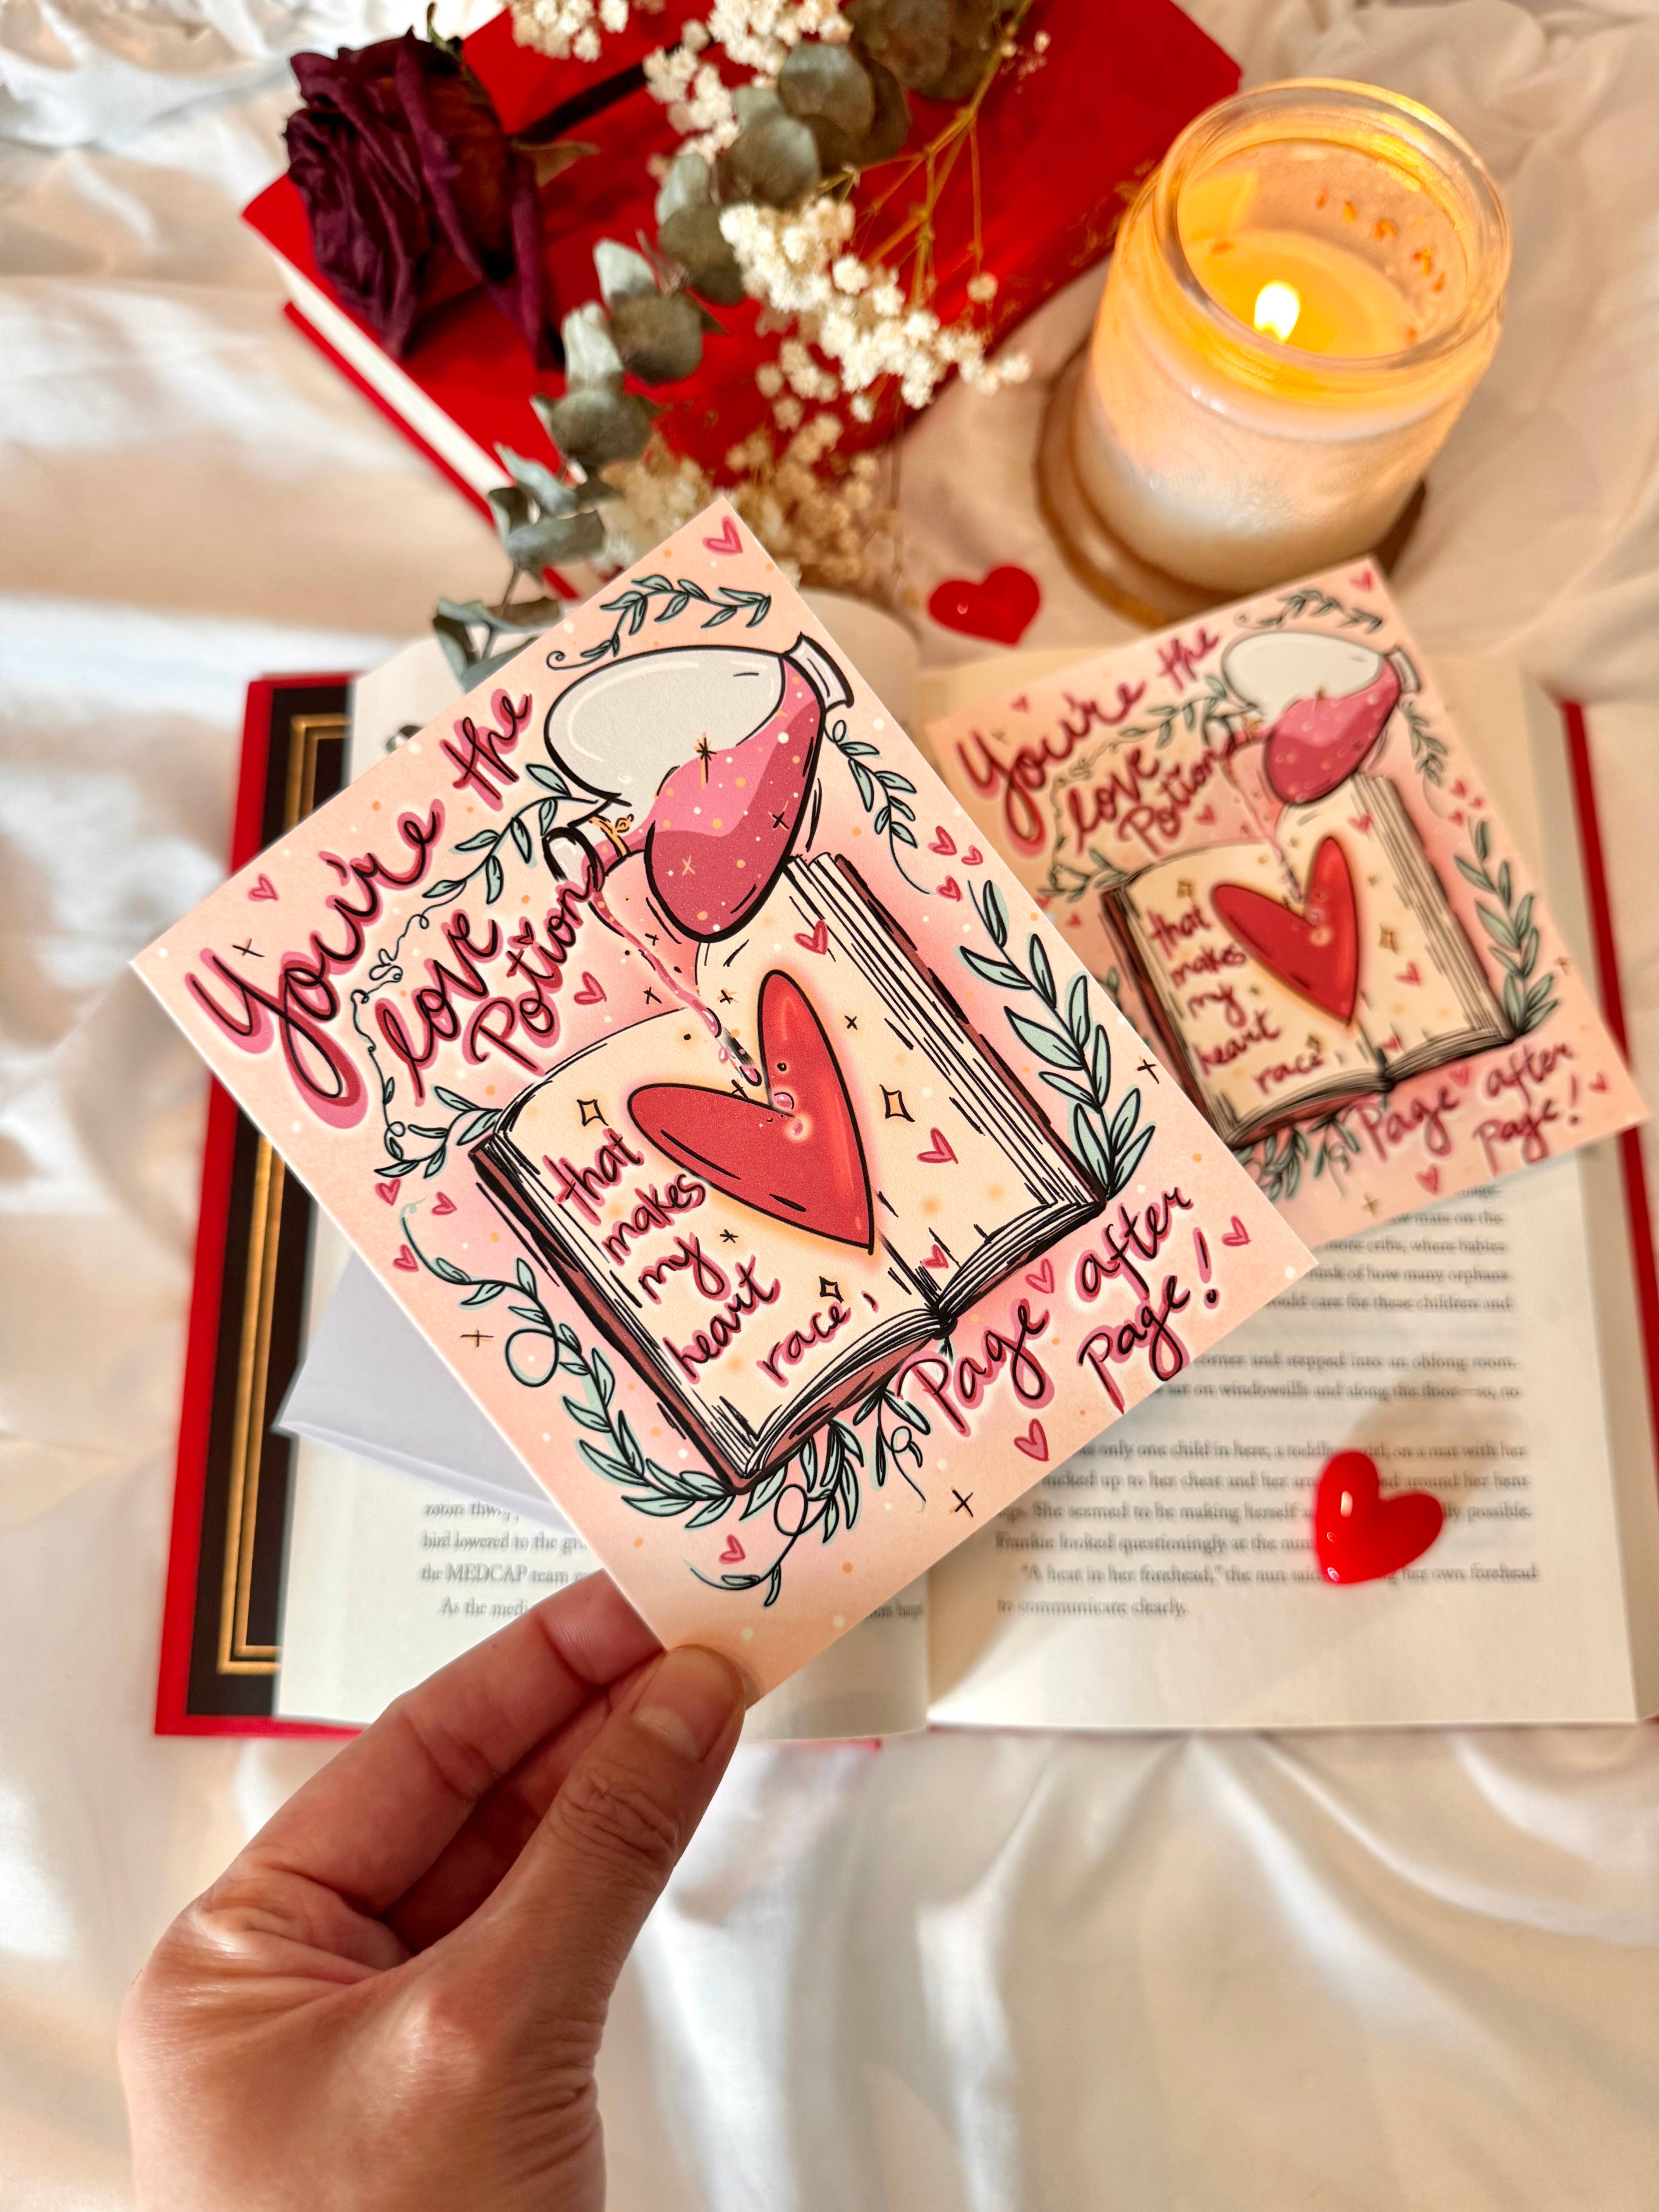 You're the
love
Potion
that
makes
my
heart
race,
Page after
Page!
You're the
love
Potion
that
makes
my
heart
race,
Page after
Page!
more cribs, where babies
think of how many orphans
ould care for these children and
corner and stepped into an oblong room.
sat on windowsills and along the floor—so, no
only one child in here, a toddler girl, on a mat with her
tucked up to her chest and her arms around her bent
legs. She seemed to be making herself as possible.
Frankie looked questioningly at the nun
"A heat in her forehead," the nun said, her own forehead
to communicate clearly.
bird lowered to the
the MEDCAP team
As the